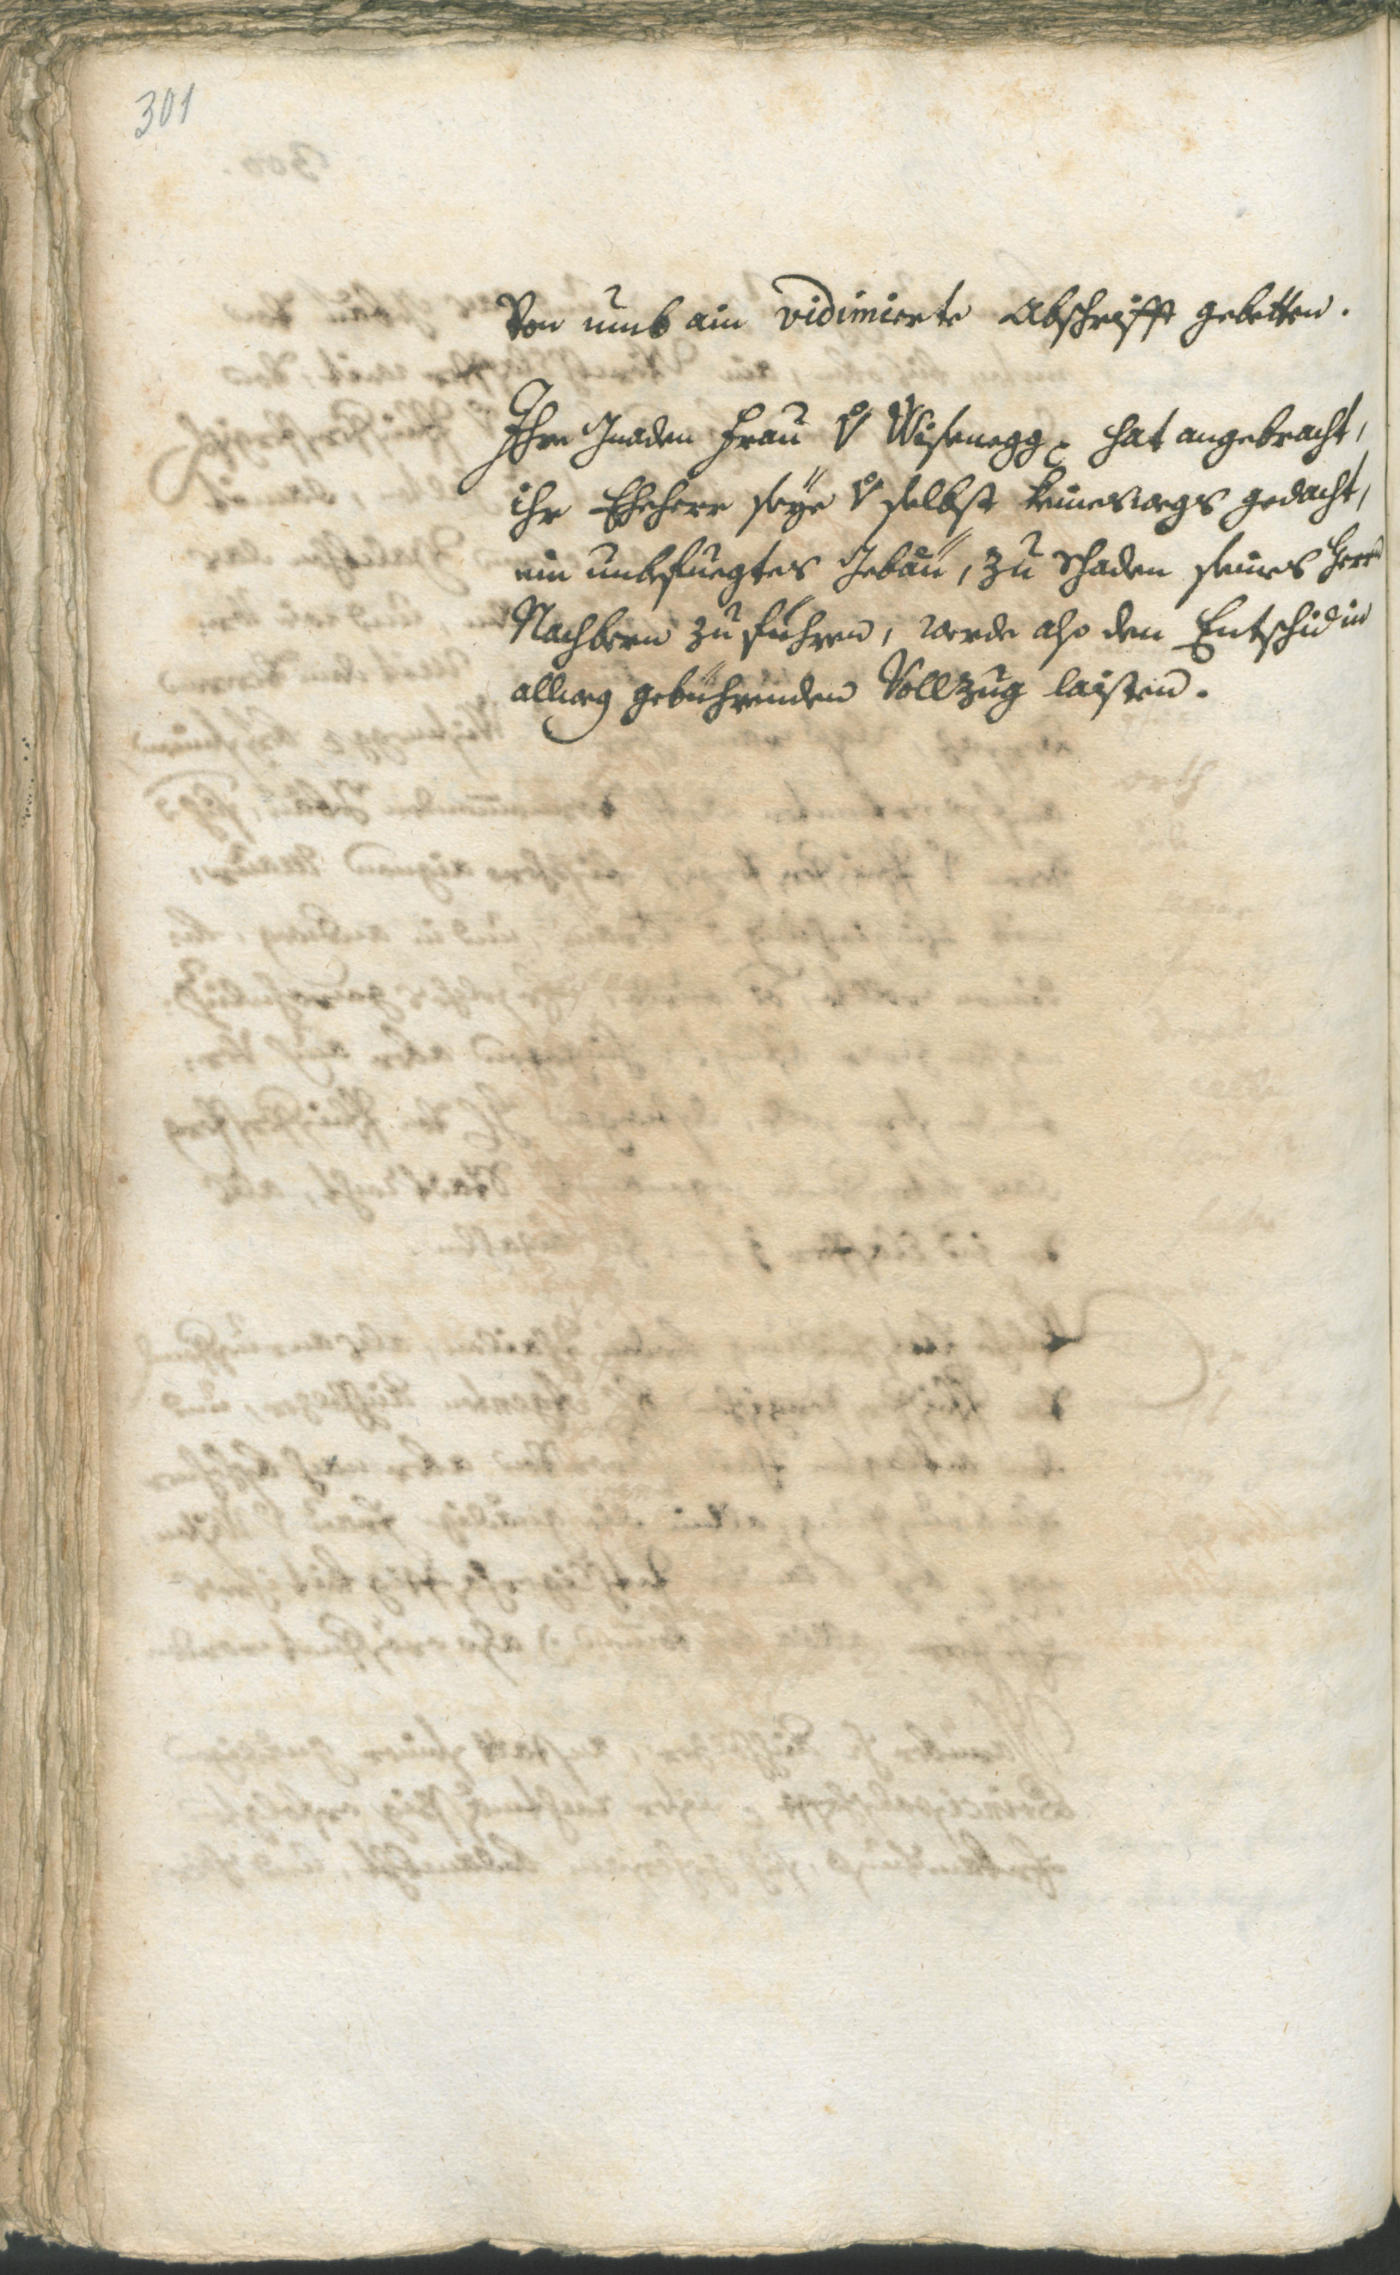 301
von umb ain vidimierte Abschrifft gebetten.
Ihre Gnaden Frau v Wisenegg hat angebracht,
ihr Eheherr seye v selbst keineswegs gedacht,
ein unbefuegtes Gebäu, zu Schaden seines Herrn
Nachbern zu führen, werde also den Entschid in
allweg gebührenden Vollzug laisten.